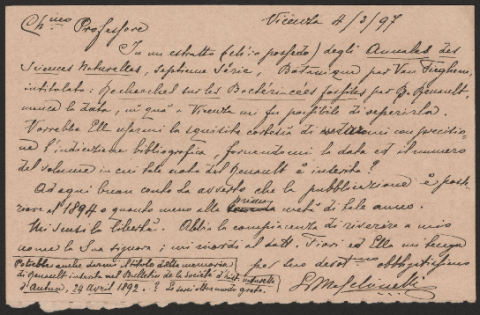 Ch.mo Professore
Vicenza 4/3/97
In un estratto (che io possedo) degli Annales des
Sciences Naturelles, septieme Série, Botanique par Van Tieghem,
intitolato: Recherches sur les Bactériacées fossiles par B. Renault,
manca la data, nè qua a Vicenza mi fu possibile di saperla.
Vorrebbe Ella usarmi la squisita cortesia di con precisio
ne l'indicazione bibliografica, fornendomi la data ed il numero
del volume in cui tale nota del Renault è inserita?
Ad ogni buon conto La avverto che la pubblicazione è poste
riore al 1894 o quanto meno alla prima metà di tale anno.
Mi scusi la libertà. Abbia la compiacenza di riverire a mio
nome la Sua signora; mi ricordi al dott. Fiori ed Ella mi tenga
per suo devot.mo obbligatissimo
Potrebbe anche darmi il titolo della memoria
di Renault inserita nel Bulletin de la société d'hist. naturelle
d'Autun, 24 Avril 1892. ? Le sarei oltremodo grato.